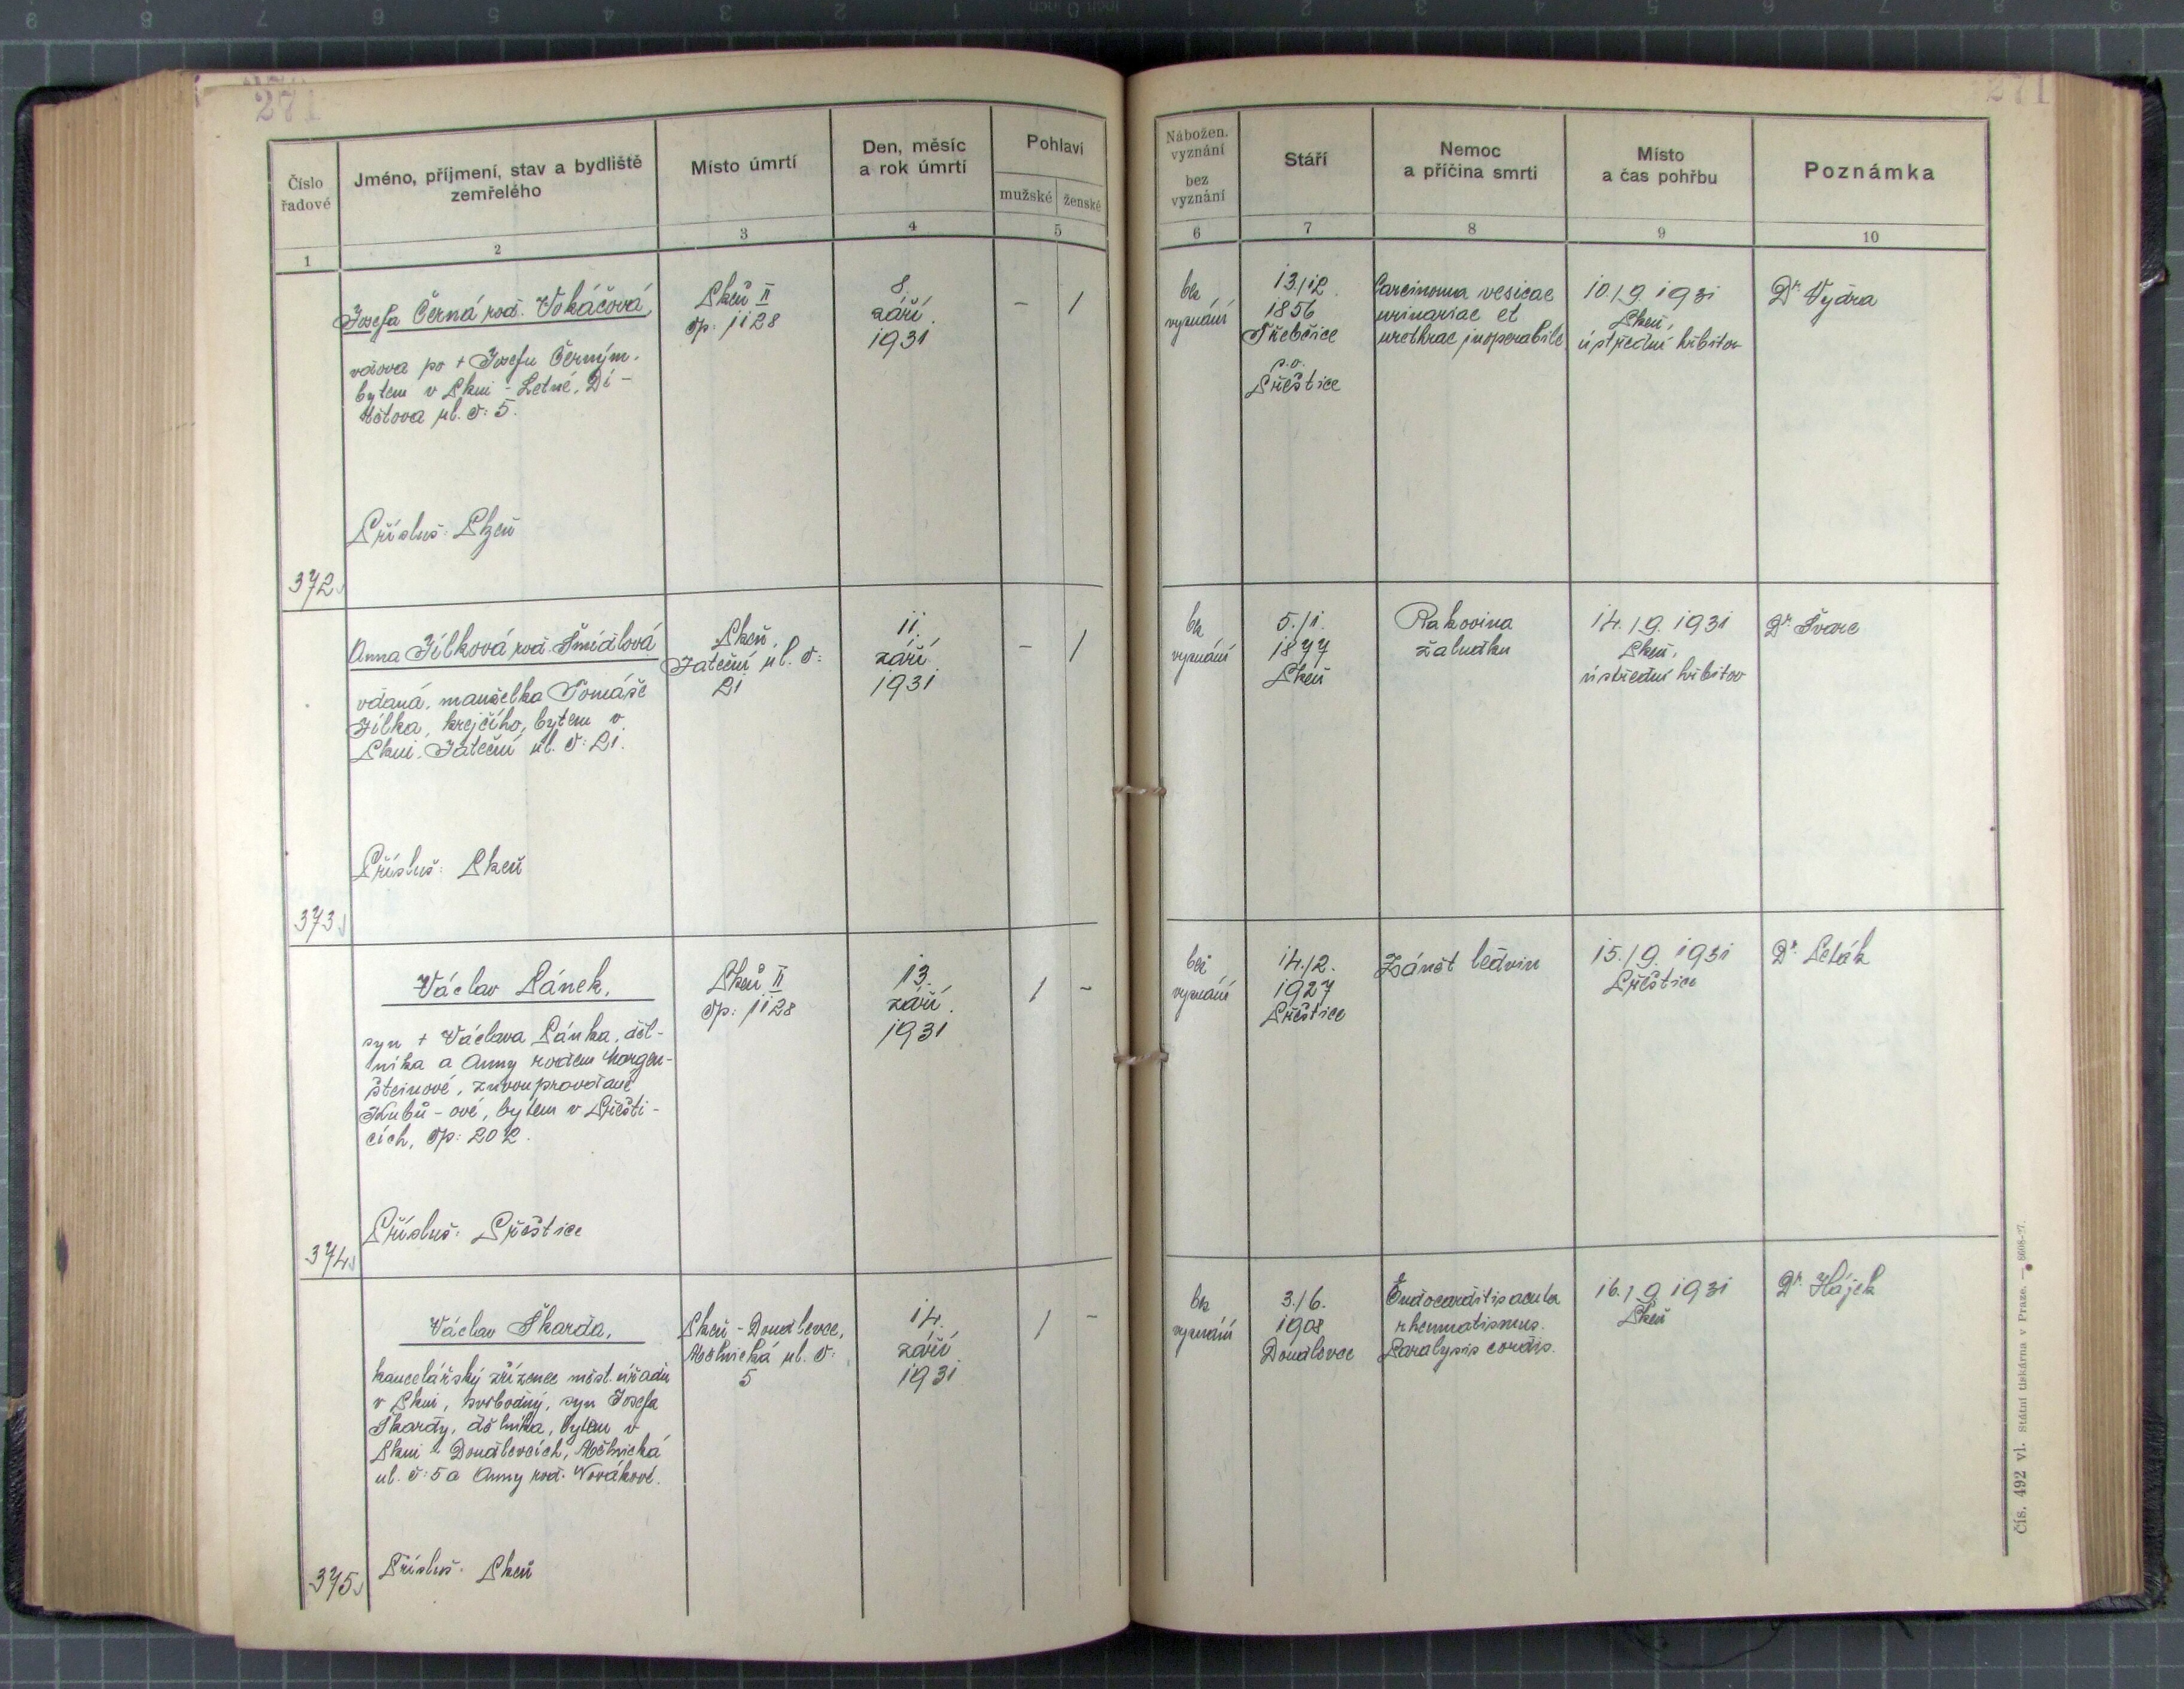 271
271
Číslo řadové
Jméno, příjmení, stav a bydliště zemřelého
Místo úmrtí
Den, měsíc a rok úmrtí
Pohlaví
mužské
ženské
Nábožen. vyznání
bez vyznání
Stáří
Nemoc a příčina smrti
Místo a čas pohřbu
Poznámka
1 2 3 4 5 6 7 8 9 10
372
Josefa Černá roz. Vokáčová,
vdova po + Josefu Černým.
bytem v Plzni - Letné, Di-
štova ul. č: 5.
Přísluš: Plzeň
Plzeň II
čp: 1128
8.
září
1931
– 1
bez
vyznání
13./12.
1856
Třebčice
p.o.
Přeštice
Carcinoma vesicae
urinariae et
urethrae inoperabile
10./9. 1931
Plzeň,
ústřední hřbitov
Dr Vydra
373
Anna Jílková roz. Šmídlová
vdaná, manželka Tomáše
Jílka, krejčího, bytem v
Plzni, Jateční ul. č: 21.
Přísluš: Plzeň
Plzeň,
Jateční ul. č:
21
11.
září
1931
– 1
bez
vyznání
5./1.
1877
Plzeň
Rakovina
žaludku
14./9. 1931
Plzeň,
ústřední hřbitov
Dr Švarc
374
Václav Pánek,
syn + Václava Pánka, děl-
níka a Anny rozem Morgen-
šteinové, znovuprovdané
Kubů-ové, bytem v Přešti-
cích, čp: 202.
Přísluš: Přeštice
Plzeň II
čp: 1128
13.
září
1931
1 –
bez
vyznání
14./2.
1927
Přeštice
Zánět ledvin
15./9. 1931
Přeštice
Dr
375
Václav Škarda,
kancelářský zřízenec měst. úřadu
v Plzni, svobodný, syn Josefa
Škardy, dělníka, bytem v
Plzni - Doudlevcích, Mělnická
ul. č: 5 a Anny roz. Novákové.
Přísluš: Plzeň
Plzeň - Doudlevce,
Mělnická ul. č:
5
14.
září
1931
1 –
bez
vyznání
3./6.
1908
Doudlevce
Endocarditis acuta
rheumatismus.
Paralysis cordis.
16./9. 1931
Plzeň
Dr Hájek
Čís. 492 vl. Státní tiskárna v Praze. —